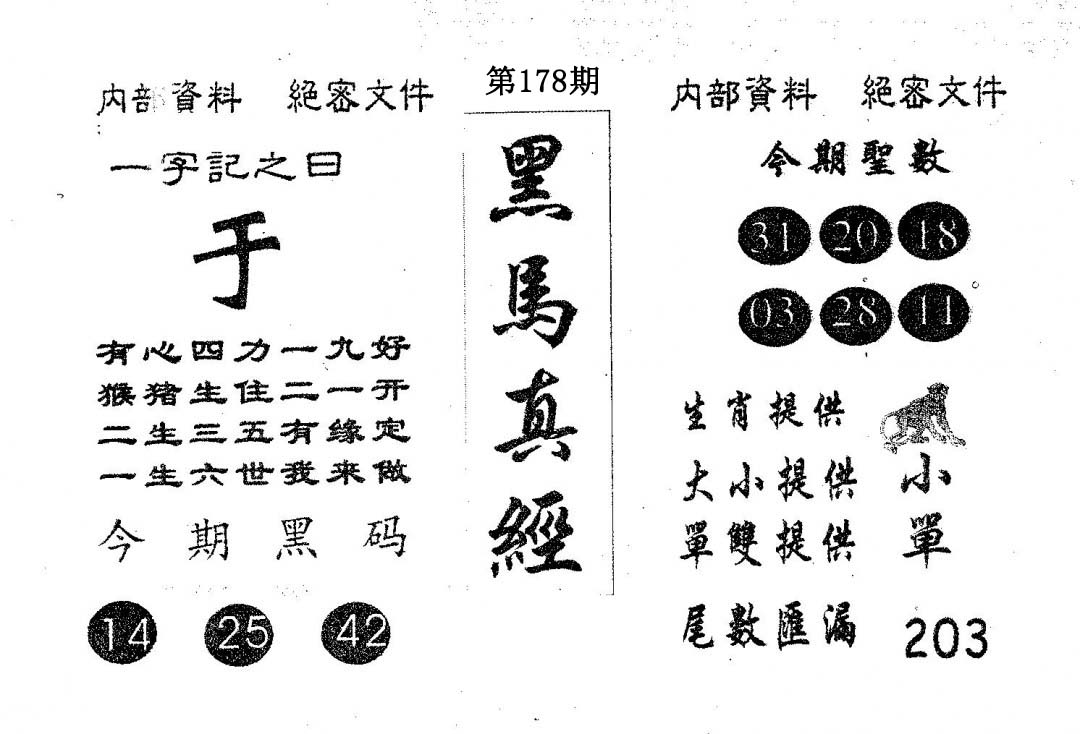 第178期
内部資料 絕密文件
一字記之曰
于
有心四力一九好
猴猪生住二一开
二生三五有缘定
一生六世我来做
今期黑码
14 25 42
黑馬真經
内部資料 絕密文件
今期聖數
31 20 18
03 28 11
生肖提供
大小提供 小
單雙提供 單
尾數匯漏 203